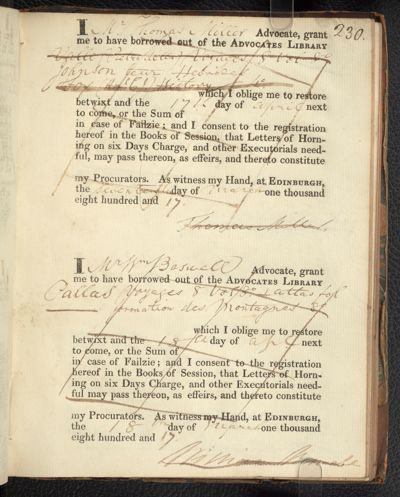 230.
I Mr Thomas Miller Advocate, grant
me to have borrowed out of the ADVOCATES LIBRARY
Johnson tour Hebrides
which I oblige me to restore
betwixt and the 17th day of April next
to come, or the Sum of
in case of Failzie; and I consent to the registration
hereof in the Books of Session, that Letters of Horn-
ing on six Days Charge, and other Executorials need-
ful, may pass thereon, as effeirs, and thereto constitute
my Procurators. As witness my Hand, at EDINBURGH,
the seventeenth day of March one thousand
eight hundred and 17.
Thomas Miller.
I Mr Wm Boswell Advocate, grant
me to have borrowed out of the ADVOCATES LIBRARY
Pallas Voyages 8 Vol 8o Pallas
formation des Montagnes
which I oblige me to restore
betwixt and the 18th day of Apl next
to come, or the Sum of
in case of Failzie; and I consent to the registration
hereof in the Books of Session, that Letters of Horn-
ing on six Days Charge, and other Executorials need-
ful may pass thereon, as effeirs, and thereto constitute
my Procurators. As witness my Hand, at EDINBURGH,
the 18th day of March one thousand
eight hundred and 17
William Boswell